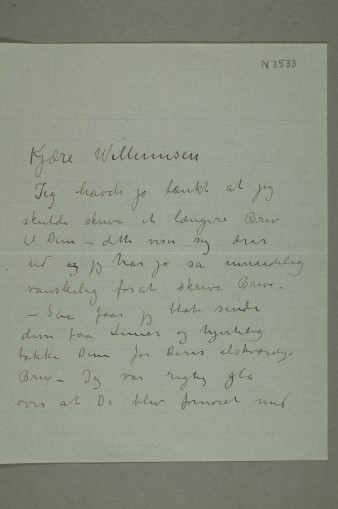 N 2533
Kjære Willumsen
Jeg havde jo tænkt at jeg
skulde skrive et længere Brev
til Dem – dette viser sig
ud og jeg har jo så umaadelig
vanskelig for at skrive Breve.
– Saa faar jeg blot sende
dem faa Linier og hjertelig
takke Dem for Deres elskværdige
Brev – Jeg var rigtig gla
over at De blev fornøiet med